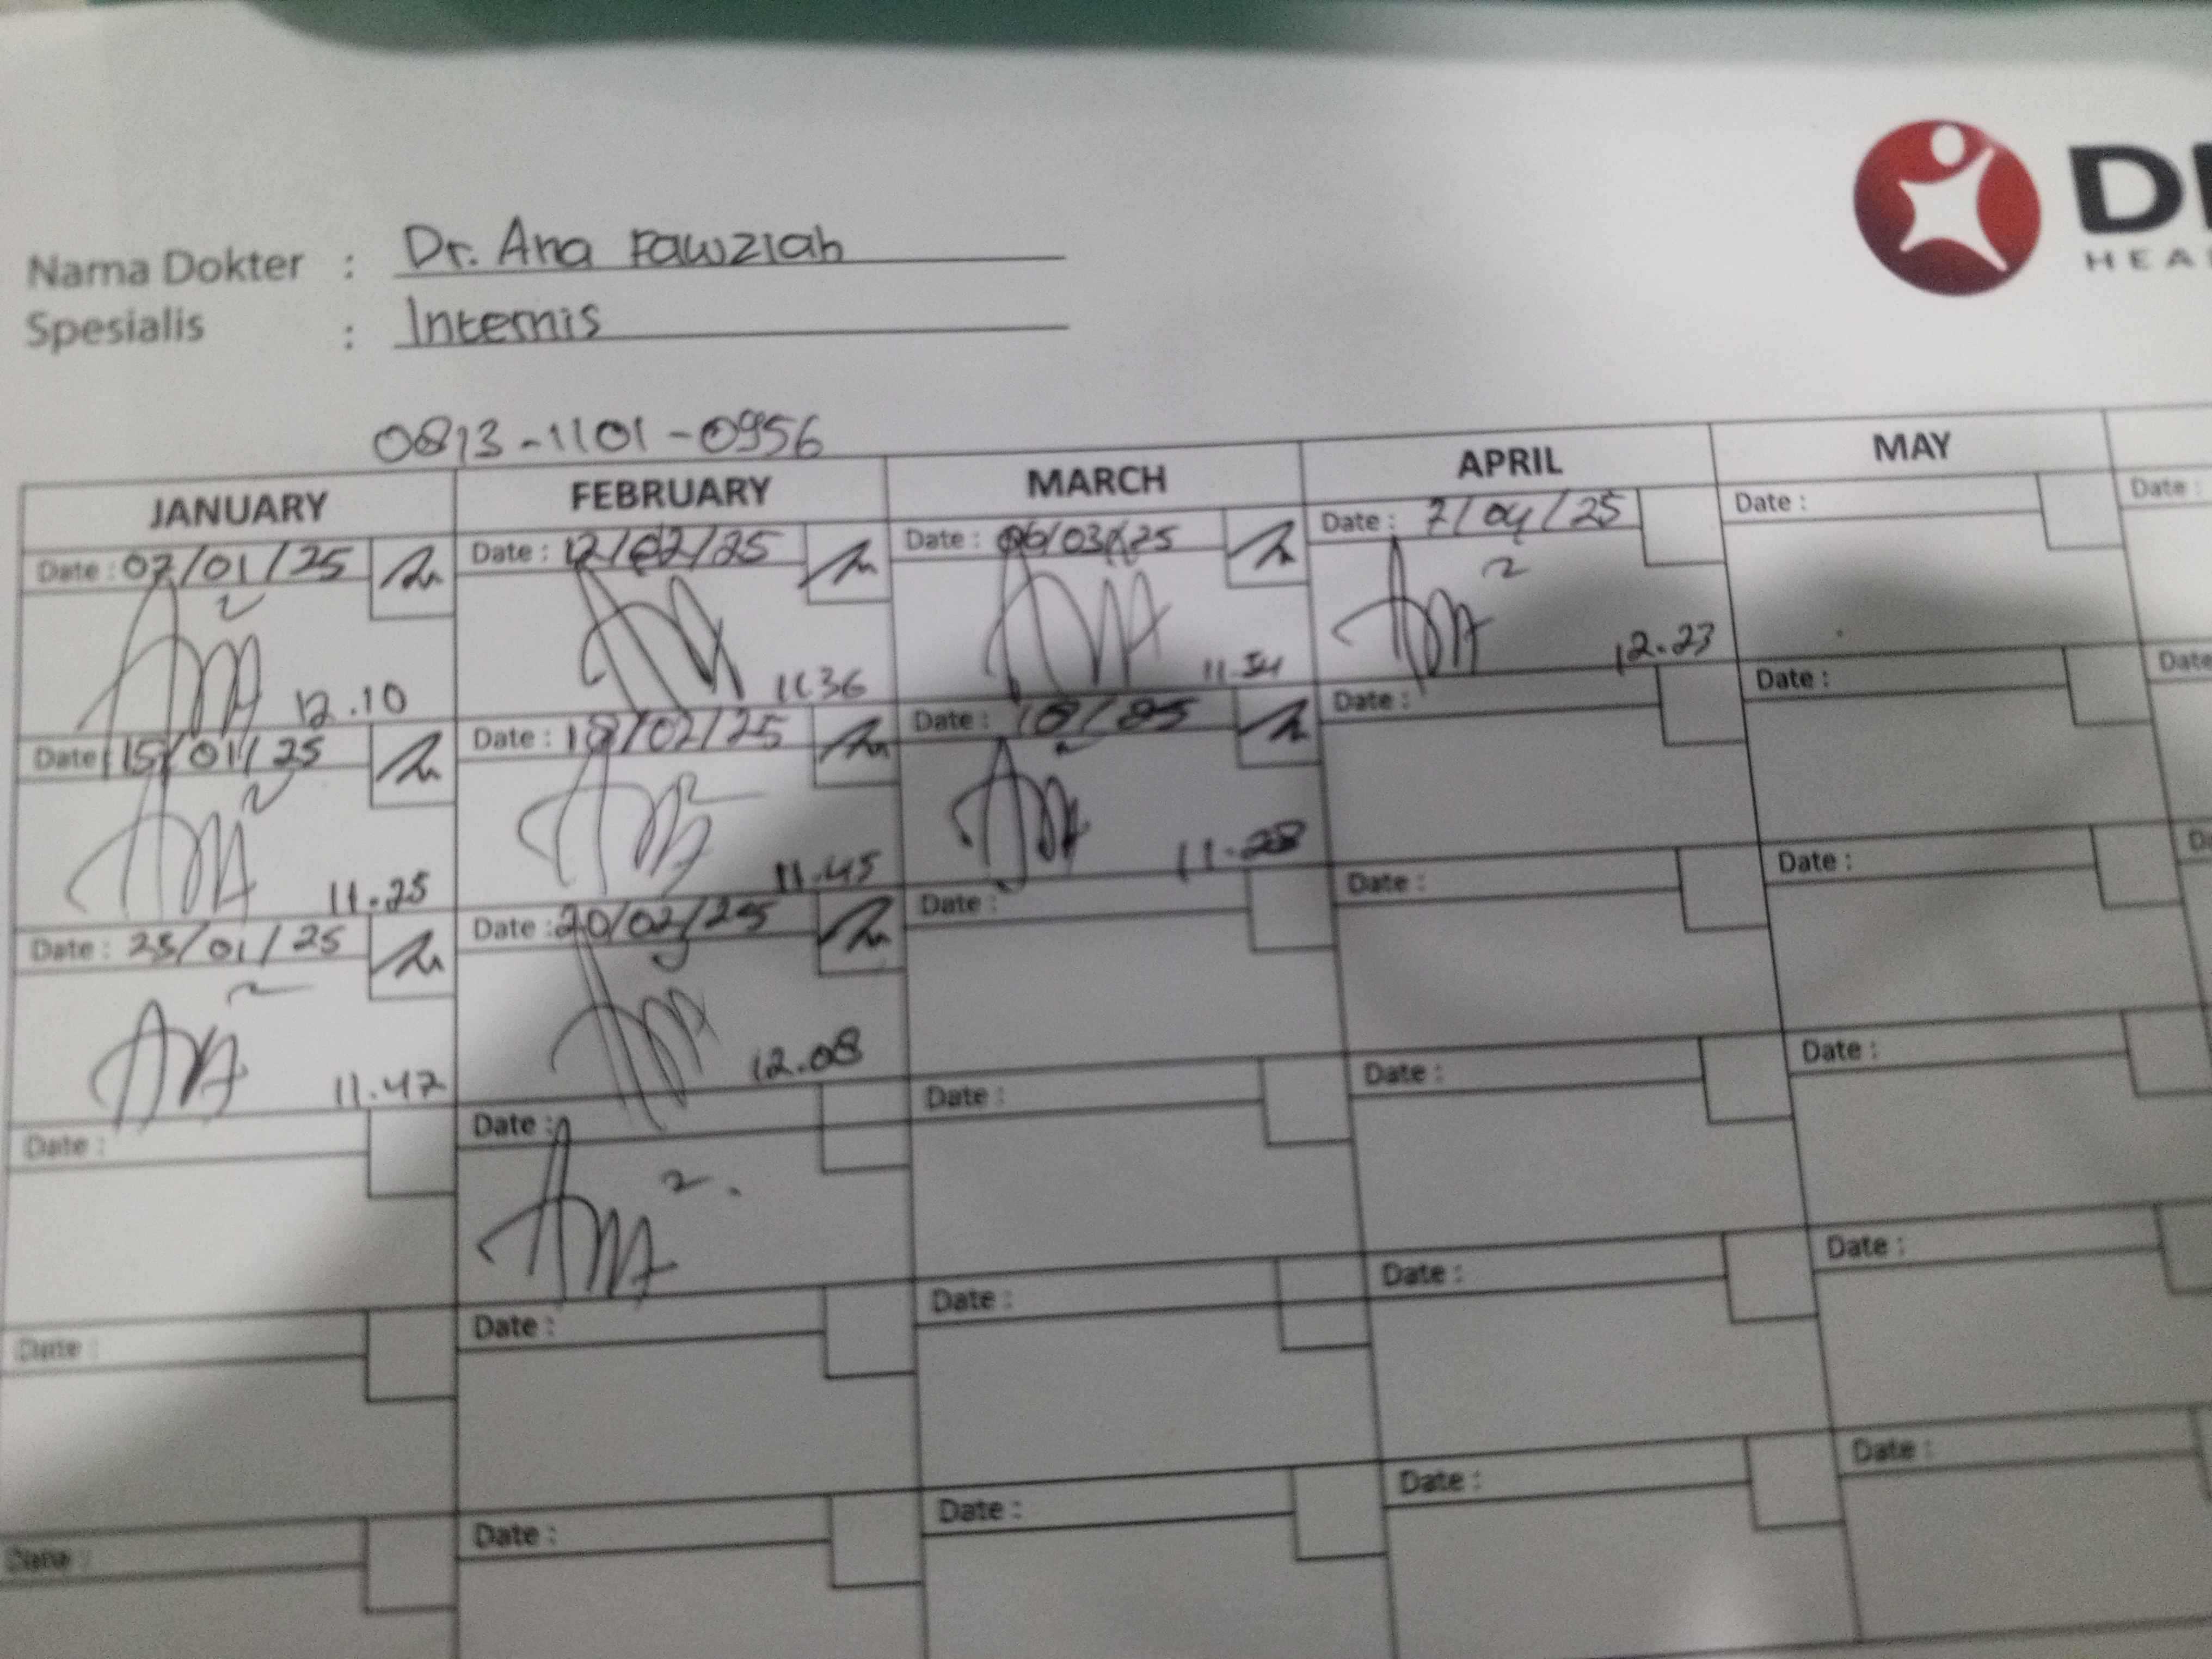 DI
HEA
Nama Dokter : Dr. Ana Fawziah
Spesialis : Internis
0813-1101-0956
JANUARY FEBRUARY MARCH APRIL MAY
Date : 07/01/25 Date : 12/02/25 Date : 06/03/25 Date : 7/04/25 Date : Date :
12.10 11.36 11.54 12.23
Date : 15/01/25 Date : 18/02/25 Date : Date : Date : Date
11.25 11.45 11.28
Date : 23/01/25 Date : 20/02/25 Date : Date : Date :
11.47 12.08
Date : Date : Date : Date : Date :
Date : Date : Date : Date : Date :
Date : Date : Date : Date : Date :